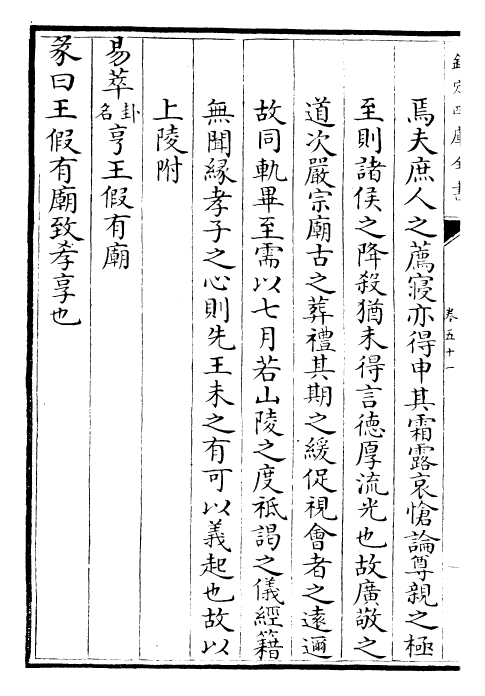 欽定四庫全書
卷五十一
焉夫庶人之薦寢亦得申其霜露哀愴論尊親之極
至則諸侯之降殺猶未得言德厚流光也故廣敬之
道次嚴宗廟古之葬禮其期之緩促視會者之遠邇
故同軌畢至需以七月若山陵之度祗謁之儀經籍
無聞緣孝子之心則先王未之有可以義起也故以
上陵附
易萃卦名亨王假有廟
彖曰王假有廟致孝享也